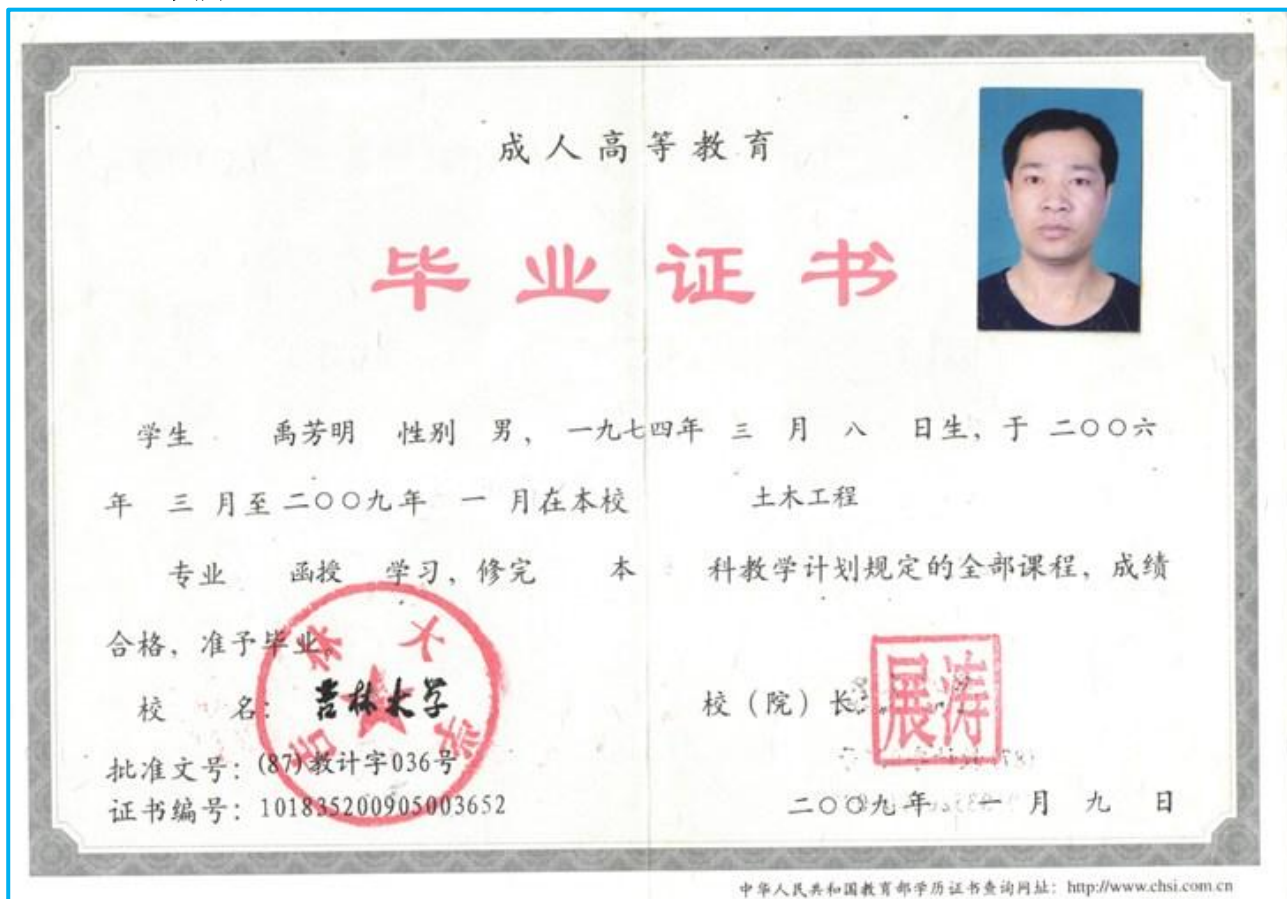 成人高等教育
毕业证书
学生 禹芳明 性别 男，一九七四年 三 月 八 日生，于 二〇〇六
年 三 月至 二〇〇九年 一 月在本校 土木工程
专业 函授 学习，修完 本 科教学计划规定的全部课程，成绩
合格，准予毕业。
校 名：吉林大学
吉林大学
校（院）长：
展涛
批准文号：(87)教计字036号
证书编号：101835200905003652
二〇〇九年 一 月 九 日
中华人民共和国教育部学历证书查询网址：http://www.chsi.com.cn